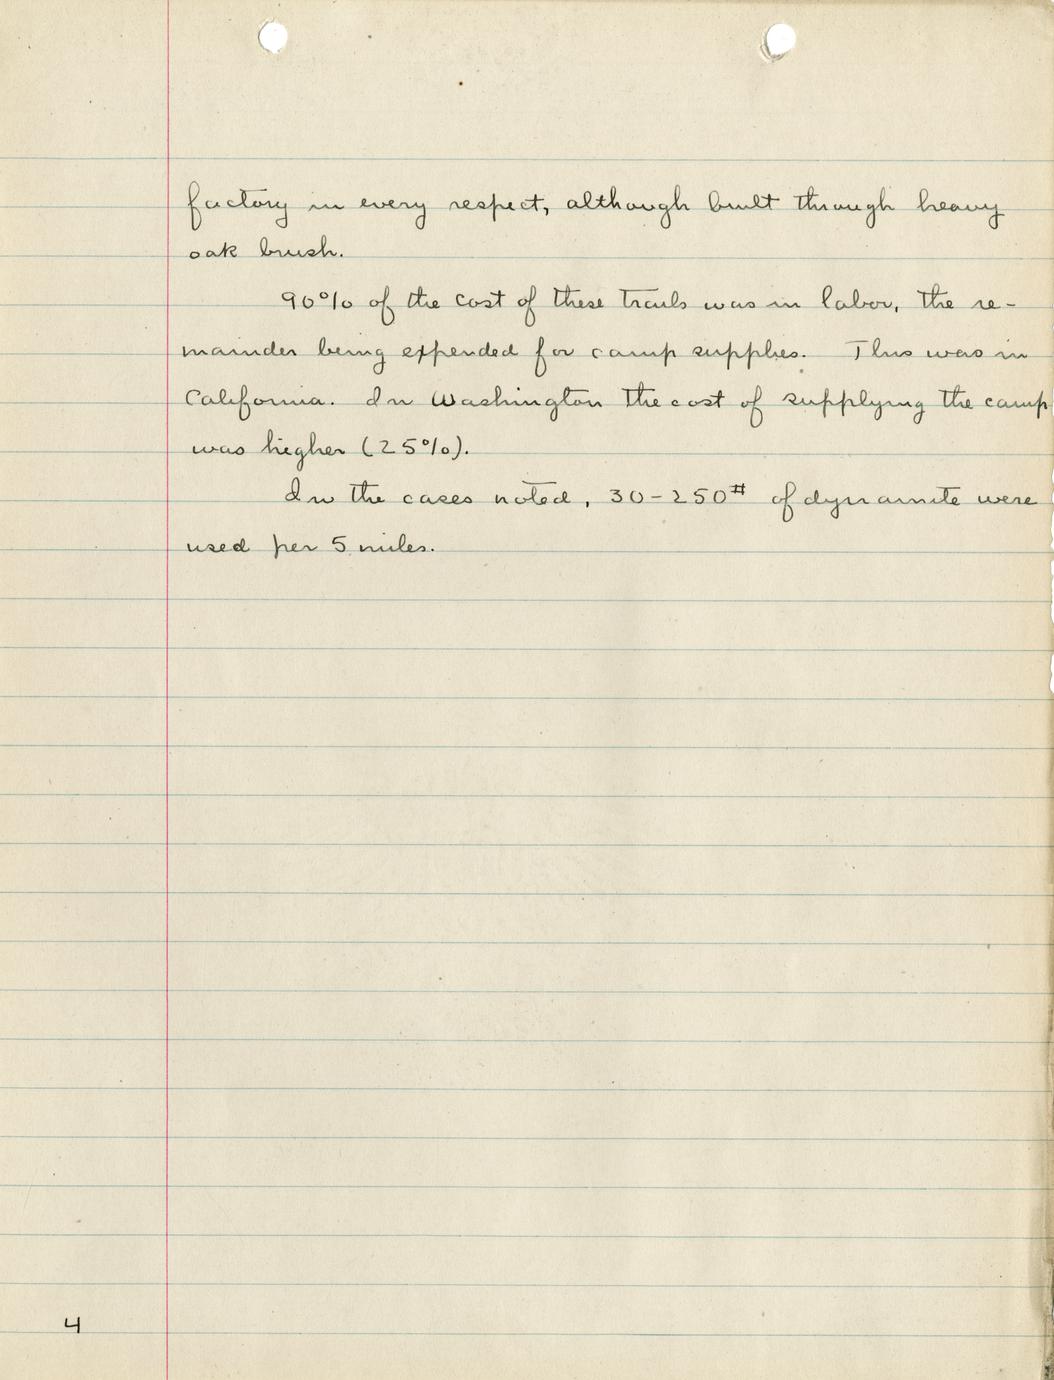 factory in every respect, although built through heavy
oak brush.
90% of the cost of these trails was in labor, the re-
mainder being expended for camp supplies. This was in
California. In Washington the cost of supplying the camp
was higher (25%).
In the cases noted, 30-250# of dynamite were
used per 5 miles.
4